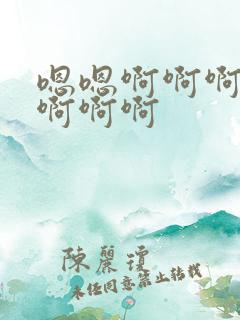 嗯嗯啊啊啊
啊啊啊
陳麗瓊
未经同意禁止转载